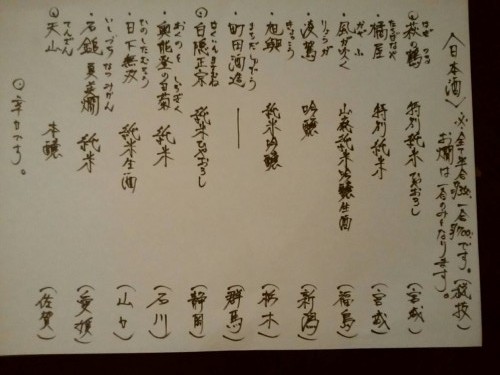 〈日本酒〉※全て半合 一合 です。(税抜)
お燗は一合のみとなります。
はぎ つる
萩の鶴 特別純米 ひやおろし (宮城)
たちばなや
橘屋 特別純米 (宮城)
かぜ ふ
風が吹く 山廃純米吟醸生酒 (福島)
吟醸 (新潟)
きょくこう
旭興 純米吟醸 (栃木)
まちだしゅぞう
町田酒造 ー (群馬)
はくいんまさむね
白隠正宗 純米ひやおろし (静岡)
おくのと しらぎく
奥能登の白菊 純米 (石川)
ひのしたむそう
日下無双 純米生酒 (山口)
いしづち なつ かん
石鎚 夏 燗 純米 (愛媛)
てんざん
天山 本醸 (佐賀)
辛口です。